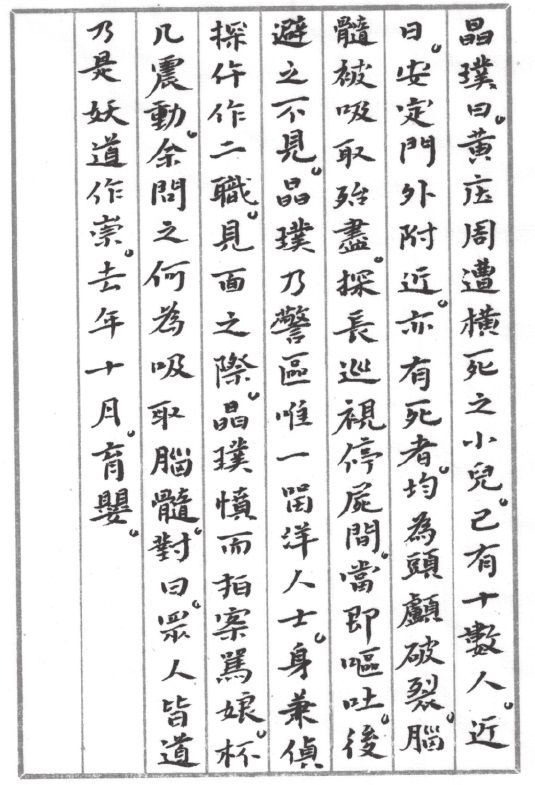 晶璞曰。黃庄周遭橫死之小兒。已有十數人。近
日。安定門外附近。亦有死者。均為頭顱破裂。腦
髓被吸取殆盡。探長巡視停屍間。當即嘔吐。後
避之不見。晶璞乃警區唯一畱洋人士。身兼偵
探仵作二職。見面之際。晶璞憤而拍案罵娘。杯
几震動。余問之何為吸取腦髓。對曰。眾人皆道
乃是妖道作祟。去年十月。育嬰。